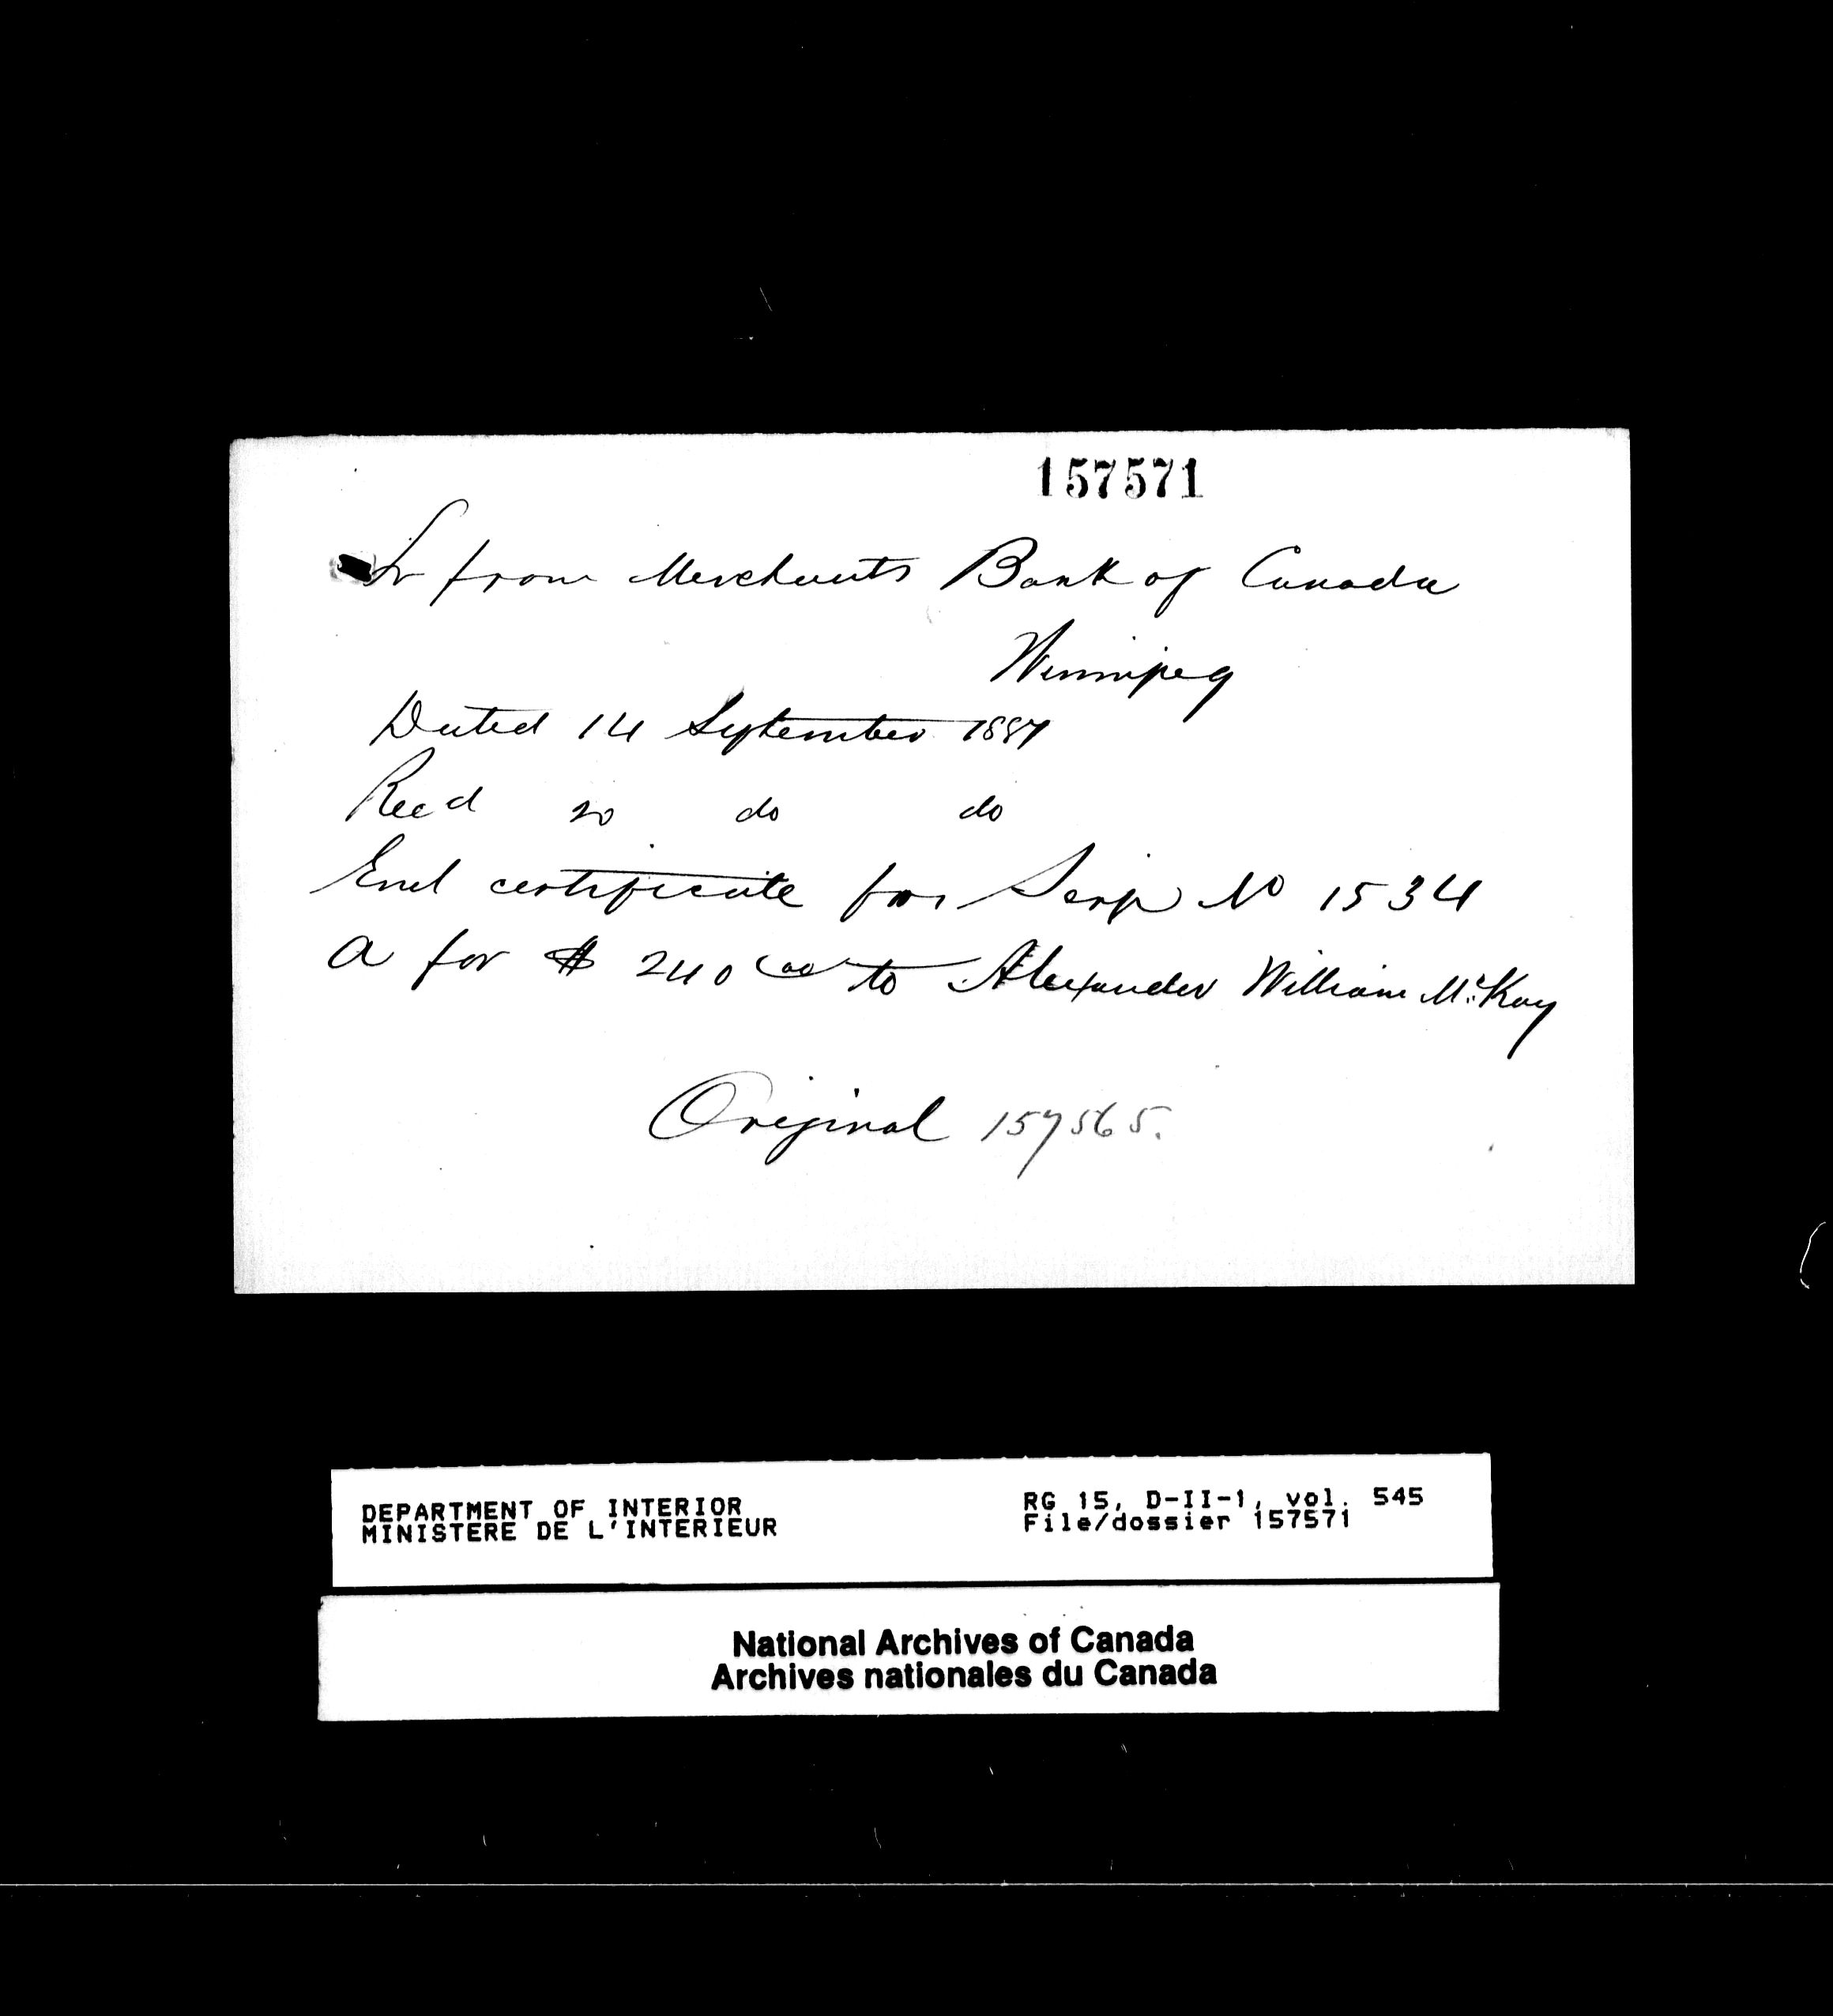 157571
Lr from Merchants Bank of Canada
Winnipeg
Dated 14 September 1887
Recd 20 do do
Encl certificate for Scrip No 1534
A for $ 240 00 to Alexander William McKay
Original 157565.
DEPARTMENT OF INTERIOR
MINISTERE DE L'INTERIEUR
RG 15, D-II-1, vol. 545
File/dossier 157571
National Archives of Canada
Archives nationales du Canada